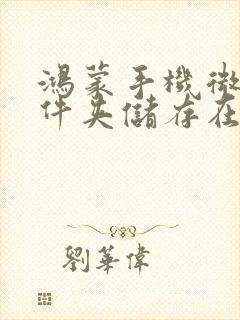 鴻蒙手機微
件夾儲存在
劉華偉